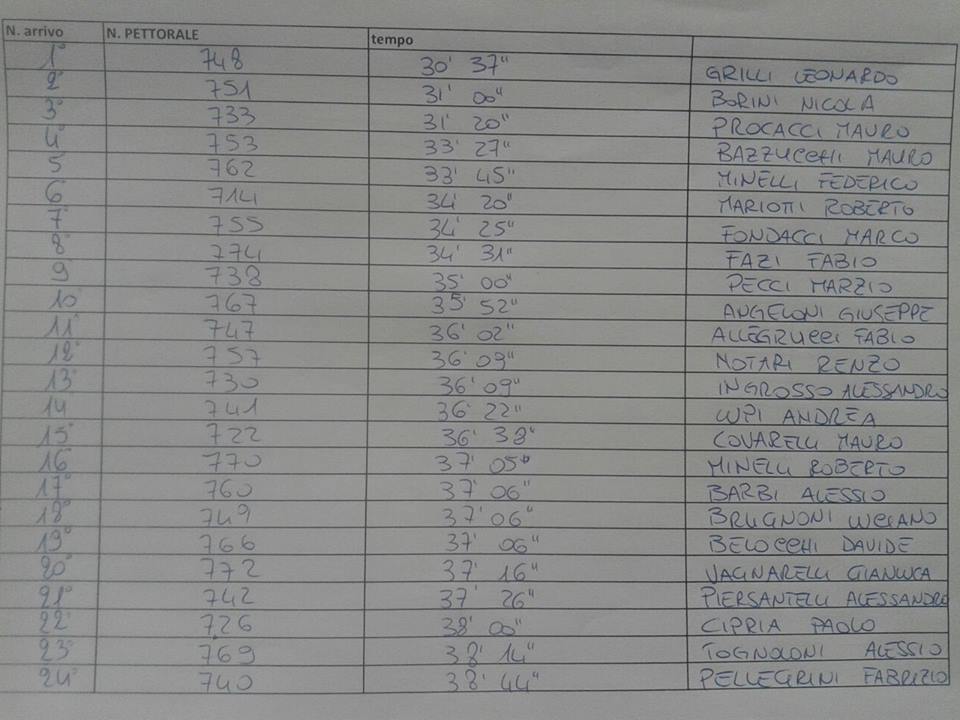 N. arrivo N. PETTORALE tempo
1° 748 30' 37" GRILLI LEONARDO
2° 751 31' 00" BORINI NICOLA
3° 733 31' 20" PROCACCI MAURO
4° 753 33' 27" BAZZUCCHI MAURO
5 762 33' 45" MINELLI FEDERICO
6 714 34' 20" MARIOTTI ROBERTO
7° 755 34' 25" FONDACCI MARCO
8° 774 34' 31" FAZI FABIO
9° 738 35' 00" PECCI MARZIO
10° 767 35' 52" ANGELONI GIUSEPPE
11° 747 36' 02" ALLEGRUCCI FABIO
12° 757 36' 09" NOTARI RENZO
13° 730 36' 09" INGROSSO ALESSANDRO
14° 741 36' 22" LUPI ANDREA
15° 722 36' 38" COVARELLI MAURO
16° 770 37' 05" MINELLI ROBERTO
17° 760 37' 06" BARBI ALESSIO
18° 749 37' 06" BRUGNONI LUCIANO
19° 766 37' 06" BELOCCHI DAVIDE
20° 772 37' 16" VAGNARELLI GIANLUCA
21° 742 37' 26" PIERSANTELLI ALESSANDRO
22° 726 38' 00" CIPRIA PAOLO
23° 769 38' 14" TOGNOLONI ALESSIO
24° 740 38' 44" PELLEGRINI FABRIZIO